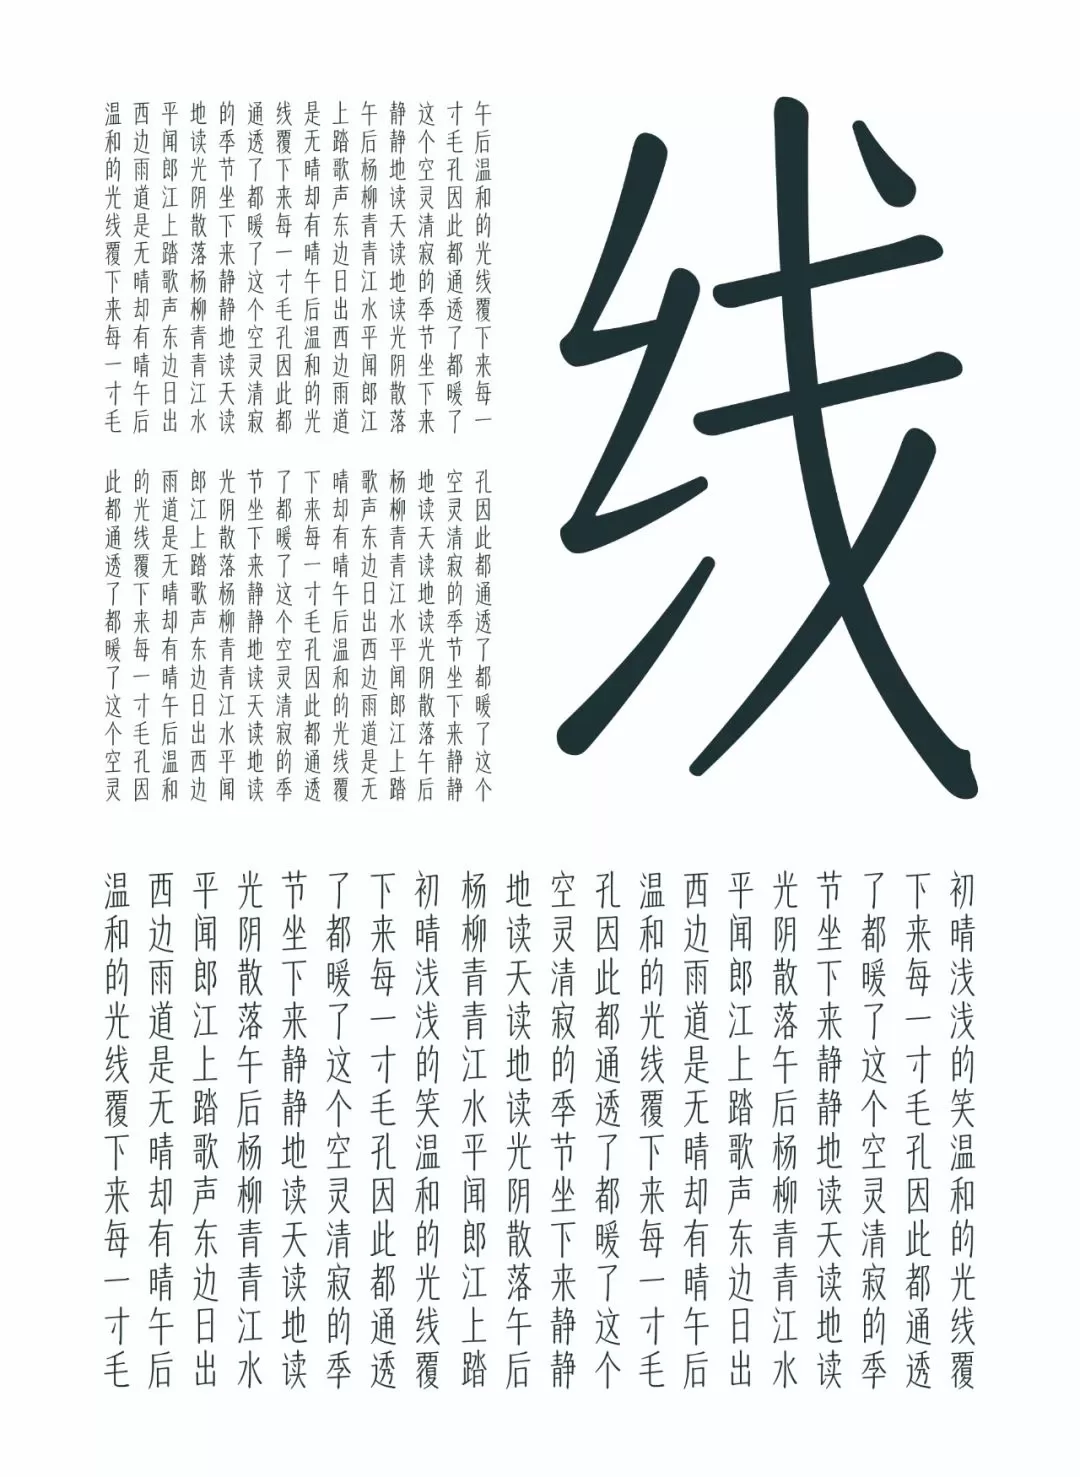 线
午后温和的光线覆下来每一
寸毛孔因此都通透了都暖了
这个空灵清寂的季节坐下来
静静地读天读地读光阴散落
午后杨柳青青江水平闻郎江
上踏歌声东边日出西边雨道
是无晴却有晴午后温和的光
线覆下来每一寸毛孔因此都
通透了都暖了这个空灵清寂
的季节坐下来静静地读天读
地读光阴散落杨柳青青江水
平闻郎江上踏歌声东边日出
西边雨道是无晴却有晴午后
温和的光线覆下来每一寸毛
孔因此都通透了都暖了这个
空灵清寂的季节坐下来静静
地读天读地读光阴散落午后
杨柳青青江水平闻郎江上踏
歌声东边日出西边雨道是无
晴却有晴午后温和的光线覆
下来每一寸毛孔因此都通透
了都暖了这个空灵清寂的季
节坐下来静静地读天读地读
光阴散落杨柳青青江水平闻
郎江上踏歌声东边日出西边
雨道是无晴却有晴午后温和
的光线覆下来每一寸毛孔因
此都通透了都暖了这个空灵
初晴浅浅的笑温和的光线覆
下来每一寸毛孔因此都通透
了都暖了这个空灵清寂的季
节坐下来静静地读天读地读
光阴散落午后杨柳青青江水
平闻郎江上踏歌声东边日出
西边雨道是无晴却有晴午后
温和的光线覆下来每一寸毛
孔因此都通透了都暖了这个
空灵清寂的季节坐下来静静
地读天读地读光阴散落午后
杨柳青青江水平闻郎江上踏
初晴浅浅的笑温和的光线覆
下来每一寸毛孔因此都通透
了都暖了这个空灵清寂的季
节坐下来静静地读天读地读
光阴散落午后杨柳青青江水
平闻郎江上踏歌声东边日出
西边雨道是无晴却有晴午后
温和的光线覆下来每一寸毛